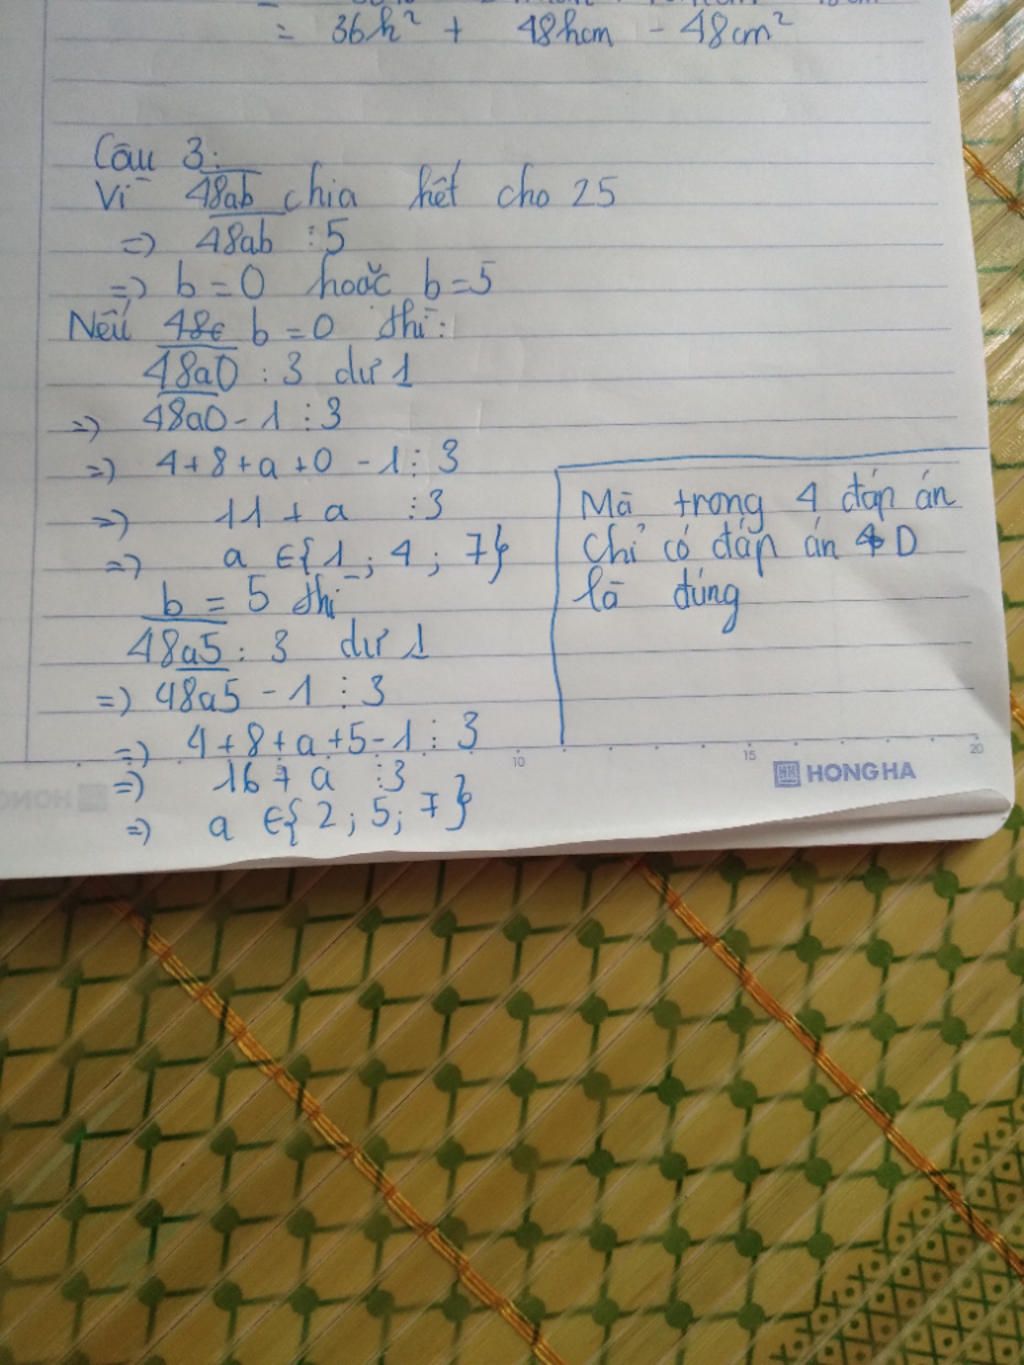 = 36h² + 48hcm - 48cm²
Câu 3:
Vì 48ab chia hết cho 25
=> 48ab ⋮ 5
=> b = 0 hoặc b = 5
Nếu 48€ b = 0 thì:
48a0 : 3 dư 1
=> 48a0 - 1 ⋮ 3
=> 4 + 8 + a + 0 - 1 ⋮ 3
=> 11 + a ⋮ 3
=> a ∈ {1 ; 4 ; 7}
b = 5 thì
48a5 : 3 dư 1
=> 48a5 - 1 ⋮ 3
=> 4 + 8 + a + 5 - 1 ⋮ 3
=> 16 + a ⋮ 3
=> a ∈ {2 ; 5 ; 7}
Mà trong 4 đáp án
chỉ có đáp án D
là đúng
10 15 20
HONG HA